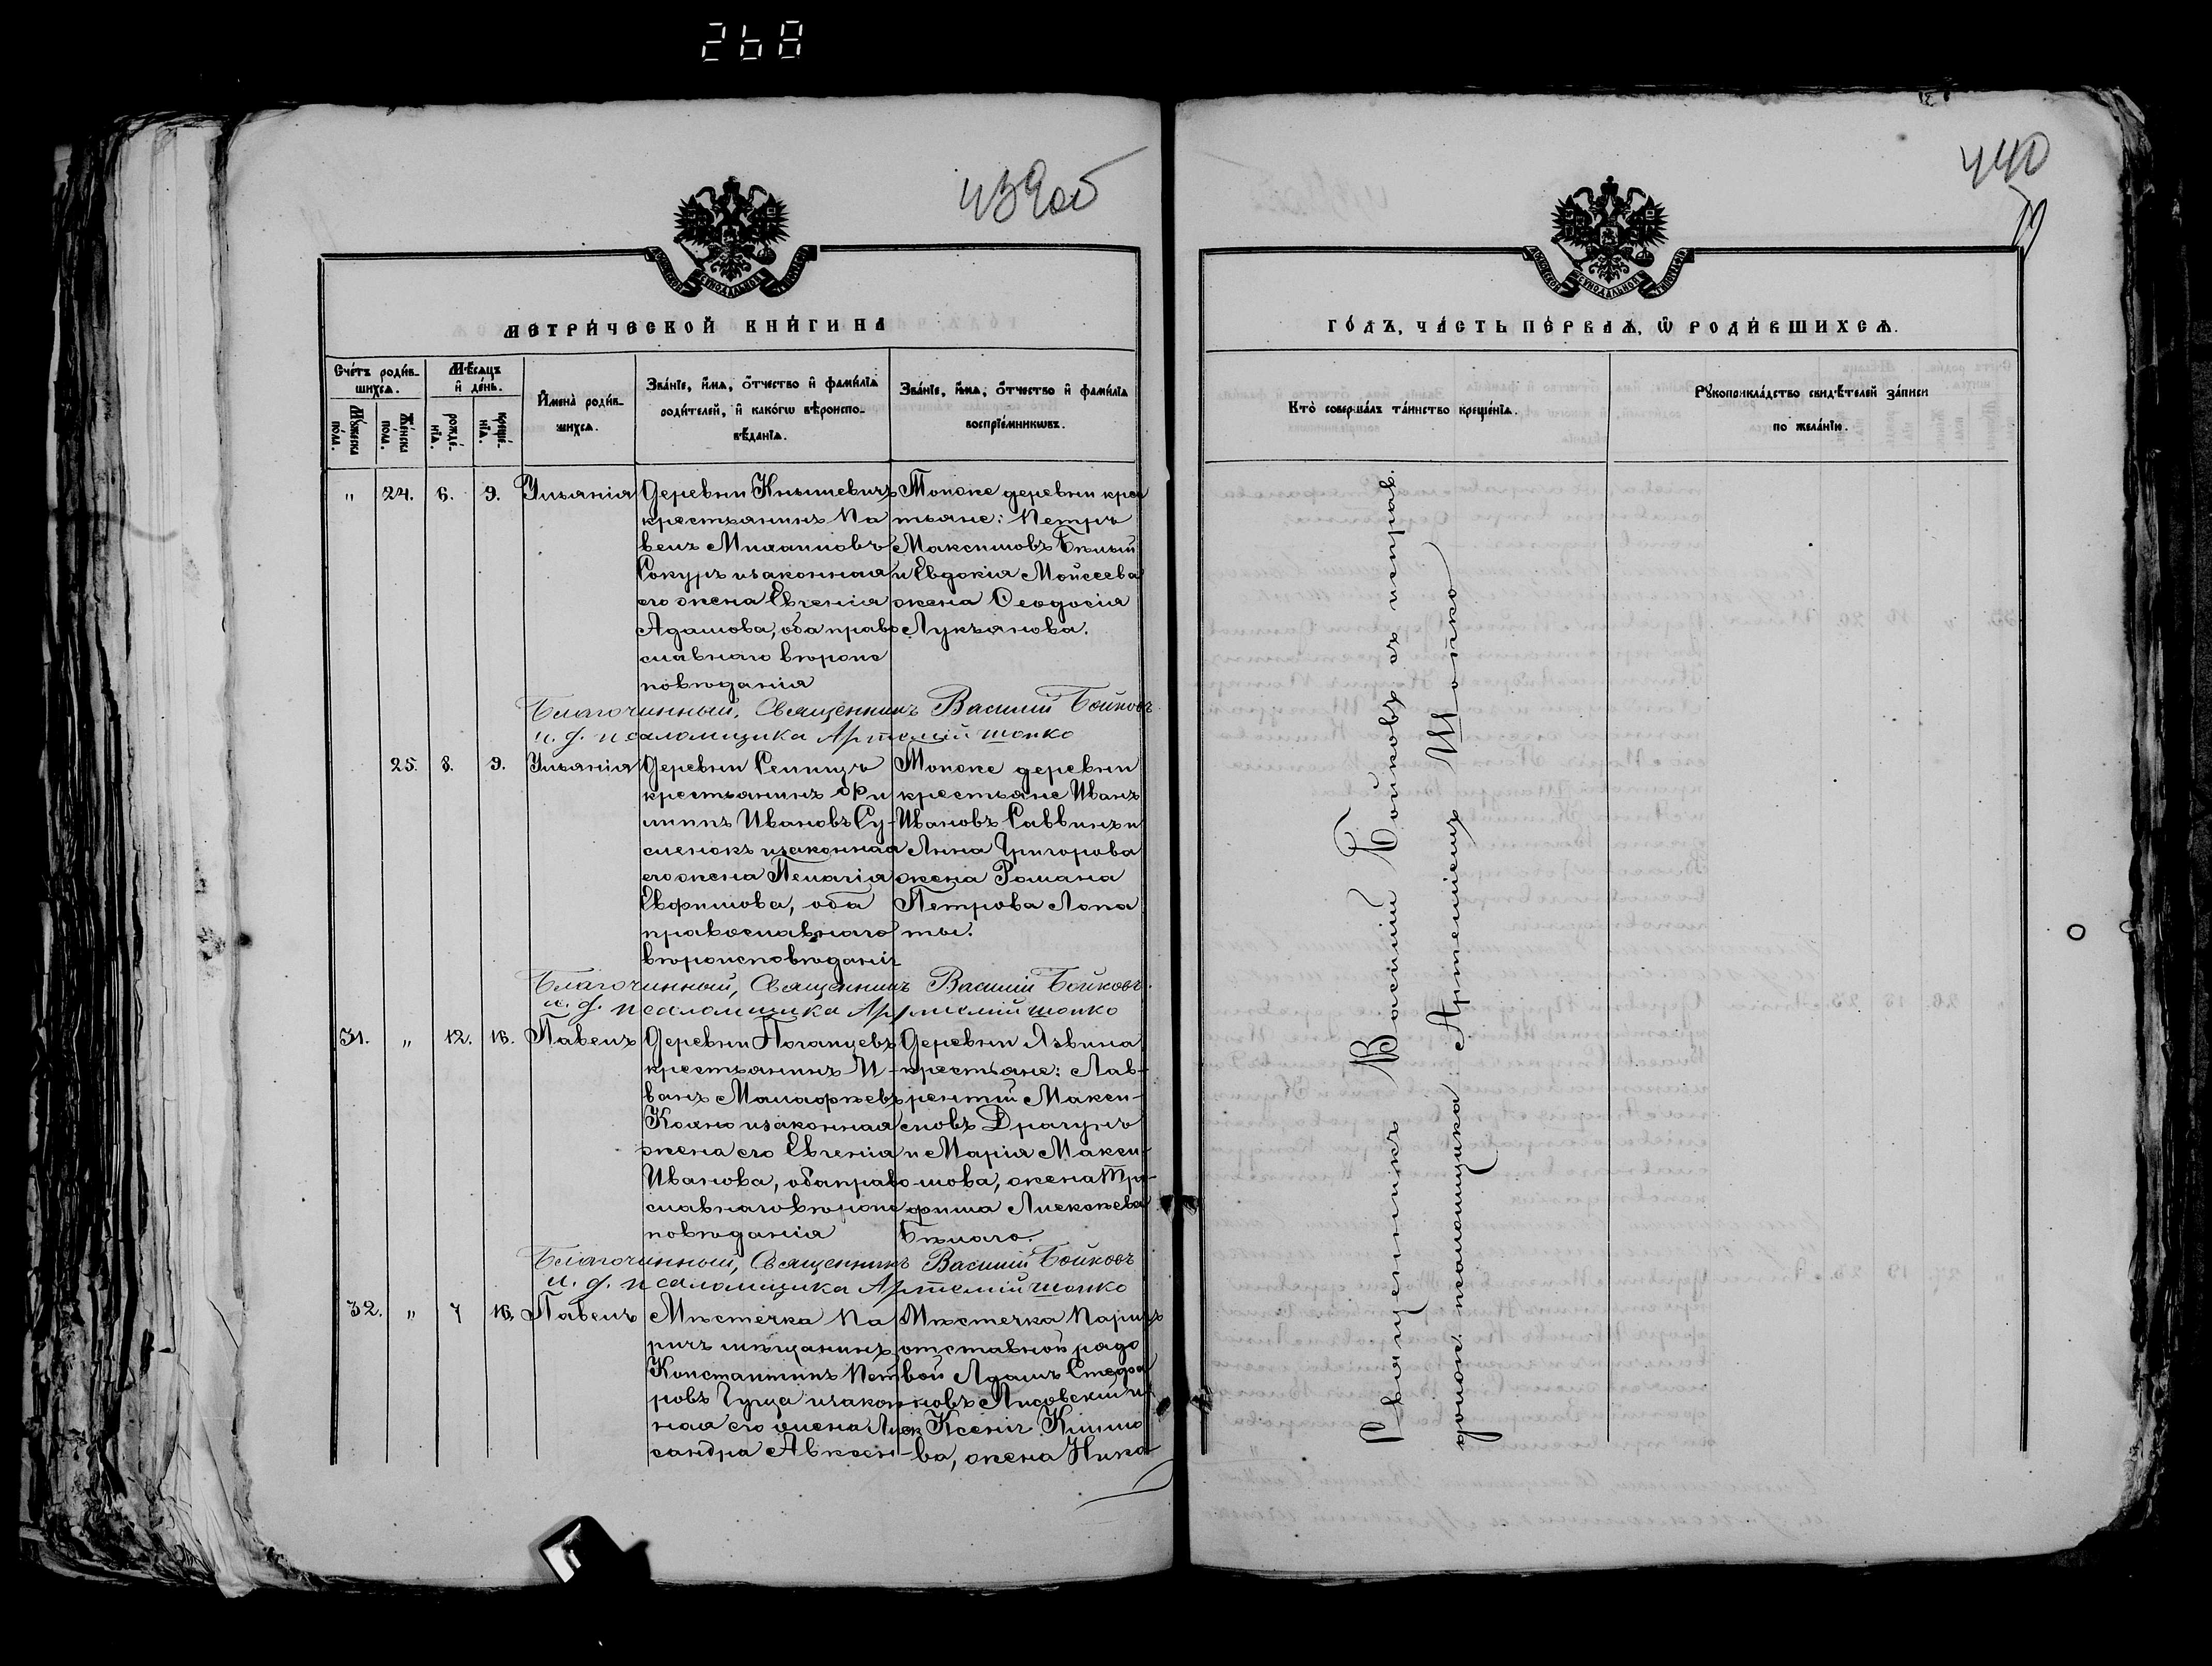 268
439об
МЕТРИЧЕСКОЙ КНИГИ НА
Счетъ родившихся.
Мужеска пола.
Женска пола.
Мѣсяцъ и день.
рожденія.
крещенія.
Имена родившихся.
Званіе, имя, отчество и фамилія родителей, и какого вѣроисповѣданія.
Званіе, имя, отчество и фамилія воспріемниковъ.
" 24. 6. 9. Ульянія
Деревни Кнышевичъ
крестьянинъ Па
велъ Михаиловъ
Сокуръ изаконная
его жена Евгенія
Адамова, оба право
славнаго вѣроис
повѣданія
Тойже деревни крес
тьяне: Петръ
Максимовъ Бѣлый
и Евдокія Мойсеева
жена Ѳеодосія
Лукьянова.
Благочинный, Священникъ Василій Бойковъ
и. д. псаломщика Артемій Шопко
25. 8. 9. Ульянія
Деревни Селищъ
крестьянинъ Фи
липпъ Ивановъ Су-
сленокъ изаконная
его жена Пелагія
Евфимова, оба
православнаго
вѣроисповѣданія
Тойже деревни
крестьяне Иванъ
Ивановъ Саввинъ и
Анна Григорова
жена Романа
Петрова Лопа
ты.
Благочинный, Священникъ Василій Бойковъ.
и. д. псаломщика Артемій Шопко
31. " 12. 16. Павелъ
Деревни Поганцевъ
крестьянинъ И-
ванъ Малафѣевъ
Кохно изаконная
жена его Евгенія
Иванова, оба право
славнаго вѣроис
повѣданія
Деревни Язвина
крестьяне: Лав-
рентій Макси-
мовъ Драгунъ
и Марія Макси-
мова, жена Тро-
фима Алексѣева
Бѣлаго.
Благочинный, Священникъ Василій Бойковъ
и. д. псаломщика Артемій Шопко
32. " 7 16. Павелъ
Мѣстечка Па
ричъ мѣщанинъ
Константинъ Пет
ровъ Гуща изакон
ная его жена Алек
сандра Авксен-
Мѣстечка Паричъ
отставной рядо
вой Адамъ Стефа
новъ Лисовскій и
Ксенія Климо
ва, жена Ника
440
ГОДЪ, ЧАСТЬ ПЕРВАЯ, Ѡ РОДИВШИХСЯ.
МОСКОВСКОЙ СУНОДАЛЬНОЙ ТИПОГРАФІИ
Кто совершалъ таинство крещенія.
Рукоприкладство свидѣтелей записи по желанію.
Священникъ Василій Бойковъ съ исправ.
должн. псаломщика Артеміемъ Шопко